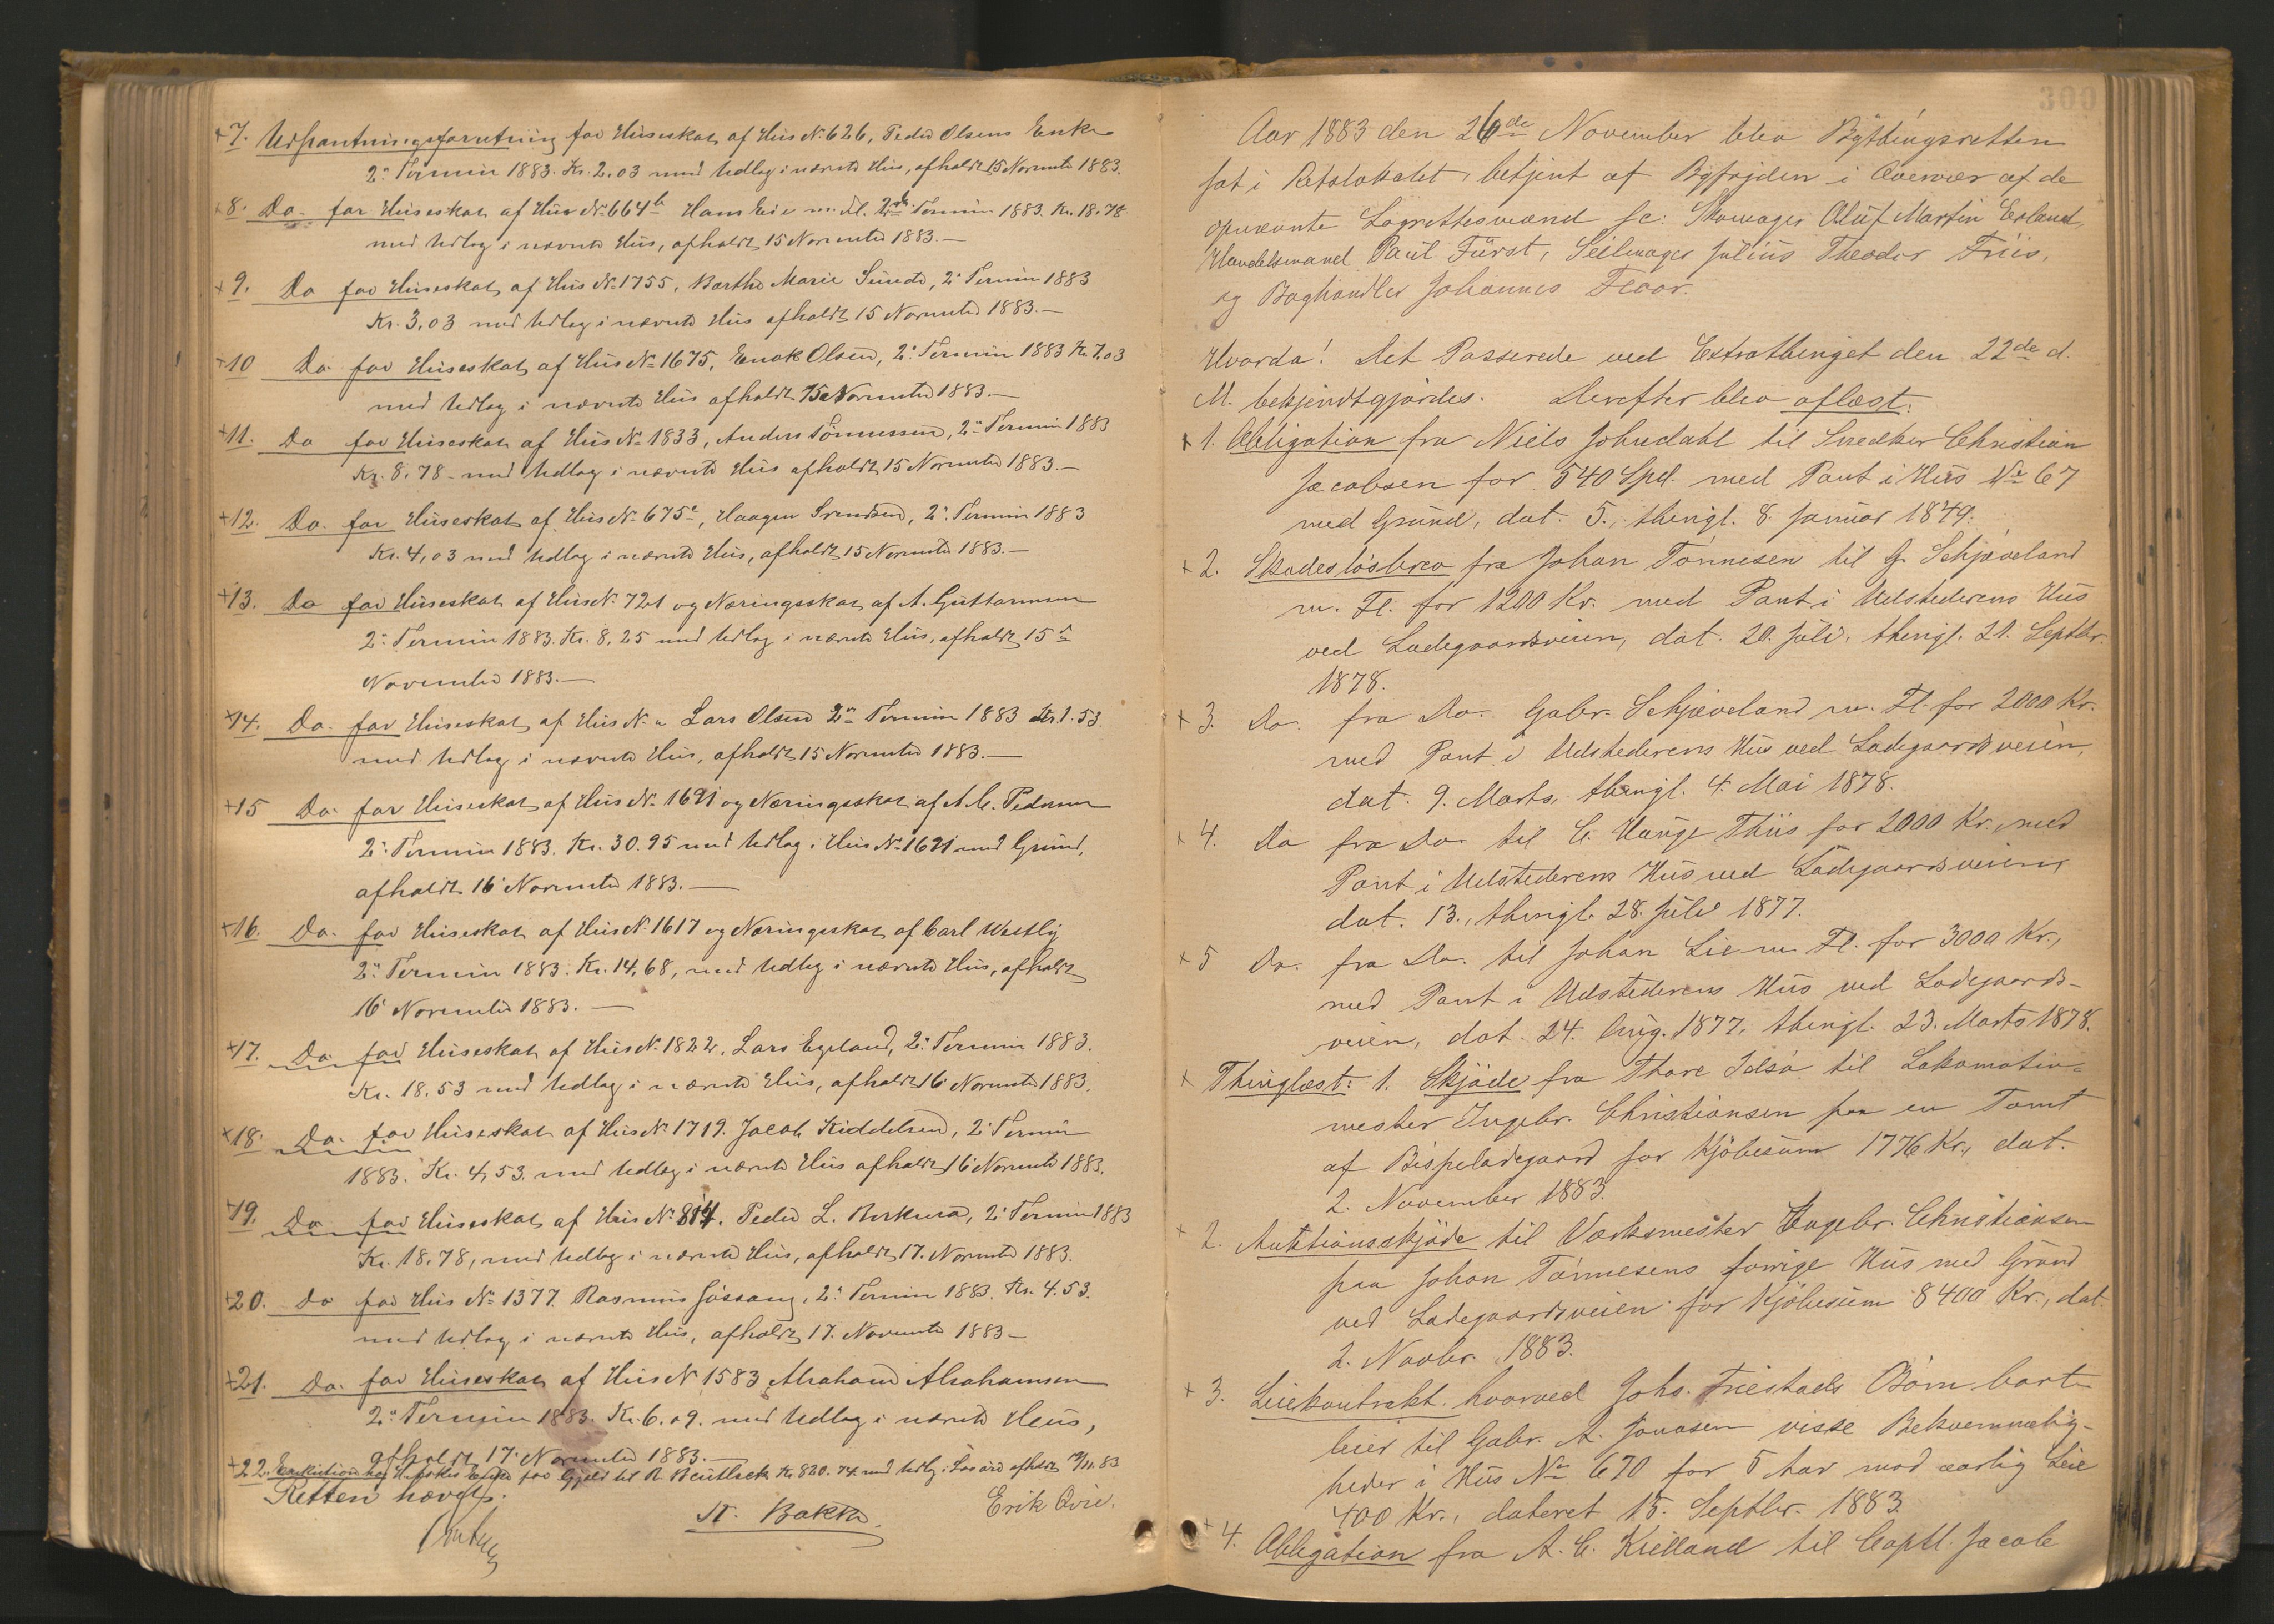 +7. Udpantningsforretning for Huseskat af Hus No 626, Peder Olsens Enke
2n Termin 1883. Kr. 2.03 med Udlæg i nævnte Hus, afholdt 15 November 1883.
+8. Do. for Huseskat af Hus No 664b Hans Eie m. Fl. 2den Termin 1883. Kr. 18.78
med Udlæg i nævnte Hus, afholdt 15 November 1883.—
+9. Do for Huseskat af Hus No 1755, Barthe Marie Sunde, 2n Termin 1883
Kr. 3,03 med Udlæg i nævnte Hus afholdt 15 November 1883.—
+10 Do for Huseskat af Hus No 1675, Enok Olsen, 2n Termin 1883 Kr. 7.03
med Udlæg i nævnte Hus afholdt 15 November 1883.—
+11. Do for Huseskat af Hus No 1833, Anders Tönnessen, 2n Termin 1883
Kr. 8.78 - med Udlæg i nævnte Hus afholdt 15 November 1883.—
+12. Do. for Huseskat af Hus No 675e, Haagen Svendsen, 2n Termin 1883
Kr. 4,03 med Udlæg i nævnte Hus, afholdt 15 November 1883.—
+13. Do for Huseskat af Hus No 721 og Næringsskat af A. Guttormsen
2n Termin 1883. Kr. 8.25 med Udlæg i nævnte Hus, afholdt 15n
November 1883.—
+14. Do. for Huseskat af Hus No " Lars Olsen 2n Termin 1883 Kr. 1.53
med Udlæg i nævnte Hus, afholdt 15 November 1883.—
+15 Do. for Huseskat af Hus No 1691 og Næringsskat af A. C. Pedersen
2n Termin 1883. Kr. 30.95 med Udlæg i Hus No 1691 med Grund,
afholdt 16 November 1883.—
+16. Do. for Huseskat af Hus No 1617 og Næringsskat af Carl Westly
2n Termin 1883. Kr. 14,68, med Udlæg i nævnte Hus, afholdt
16 November 1883.—
+17. Do for Huseskat af Hus No 1822. Lars Egeland, 2n Termin 1883.
Kr. 18.53 med Udlæg i nævnte Hus, afholdt 16 November 1883.
+18. Do. for Huseskat af Hus No 1719. Jacob Kiddelsen, 2n Termin
1883. Kr. 4,53. med Udlæg i nævnte Hus afholdt 16 November 1883.
+19. Do for Huseskat af Hus No 814. Peder L. 2n Termin 1883
Kr. 18.78, med Udlæg i nævnte Hus, afholdt 17. November 1883.
+20. Do for Hus No 1377. Rasmus Jössang, 2n Termin 1883. Kr. 4.53.
med Udlæg i nævnte Hus, afholdt 17. November 1883—
+21. Do. for Huseskat af Hus No 1583 Abraham Abrahamsen
2n Termin 1883. Kr. 6.09. med Udlæg i nævnte Hus,
afholdt 17. November 1883.—
+22. Exekution hos for Gjæld til R. Kr 820.74 med Udlæg i Løsøre afholdt 19/11.83
Retten hævet.
N. Bakka. Erik Qvie.
300
Aar 1883 den 26de November blev Bythingsretten
sat i Retslokalet, betjent af Byfogden i Overvær af de
opnævnte Lagrettesmænd sc: Skomager Oluf Martin Erland,
Handelsmand Paul Fürst, Seilmager Julius Theodor Friis,
og Boghandler Johannes Floor.
Hvorda! Det Passerede ved Extrathinget den 22de d.
M. bekjendtgjordes. Derefter blev aflæst:
+1. Obligation fra Niels Johndahl til Snedker Christian
Jacobsen for 540 Spd. med Pant i Hus No 67
med Grund, dat. 5., thingl. 8. Januar 1849.
+2. Skadeslösbrev fra Johan Tönnesen til G. Schjæveland
m. Fl. for 1200 Kr. med Pant i Udstederens Hus
ved Ladegaardsveien, dat. 20. Juli, thingl. 21. Septbr.
1878.
+3. Do. fra Do. Gabr. Schjæveland m. Fl. for 2000 Kr.
med Pant i Udstederens Hus ved Ladegaardsveien,
dat. 9. Marts, thingl. 4. Mai 1878.
+4. Do fra Do til C. Hauge Thiis for 2000 Kr., med
Pant i Udstederens Hus ved Ladegaardsveien,
dat. 13., thingl. 28. Juli 1877.
+5 Do. fra Do. til Johan Lie m. Fl. for 3000 Kr.,
med Pant i Udstederens Hus ved Ladegaards-
veien, dat. 24. Aug. 1877, thingl. 23. Marts 1878.
+ Thinglæst: 1. Skjöde fra Thore Idsö til Lokomotiv-
mester Ingebr. Christiansen paa en Tomt
af Bispeladegaard for Kjöbesum 1776 Kr., dat.
2. November 1883.
+2. Auktionsskjöde til Værksmester Engebr. Christiansen
paa Johan Tönnesens forrige Hus med Grund
ved Ladegaardsveien for Kjöbesum 8400 Kr., dat.
2. Novbr. 1883.
+3. Leiekontrakt hvorved Johs. Friestads Börn bort-
leier til Gabr. A. Jonasen visse Bekvemmelig-
heder i Hus No 670 for 5 Aar mod aarlig Leie
400 Kr., dateret 15. Septbr. 1883.
+4. Obligation fra A. C. Kielland til Captl. Jacob